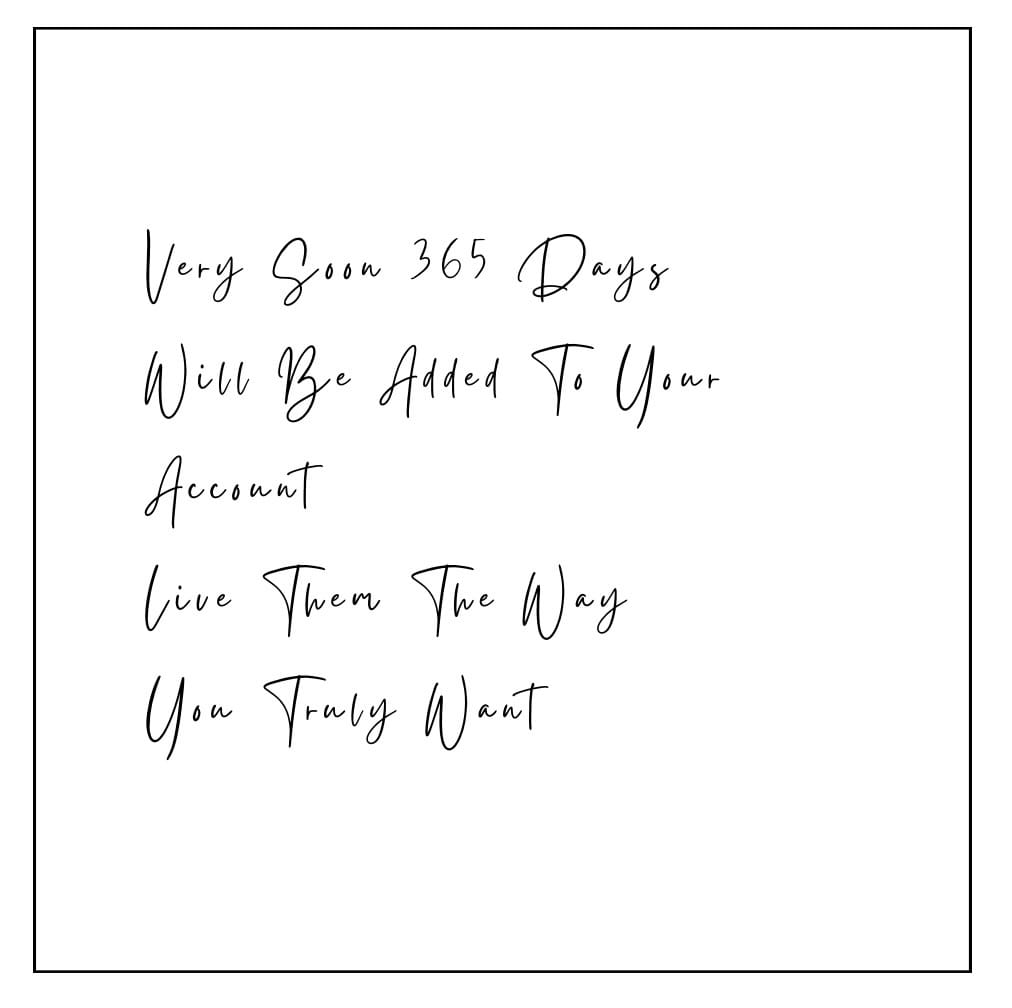 Very Soon 365 Days
Will Be Added To Your
Account
Live Them The Way
You Truly Want